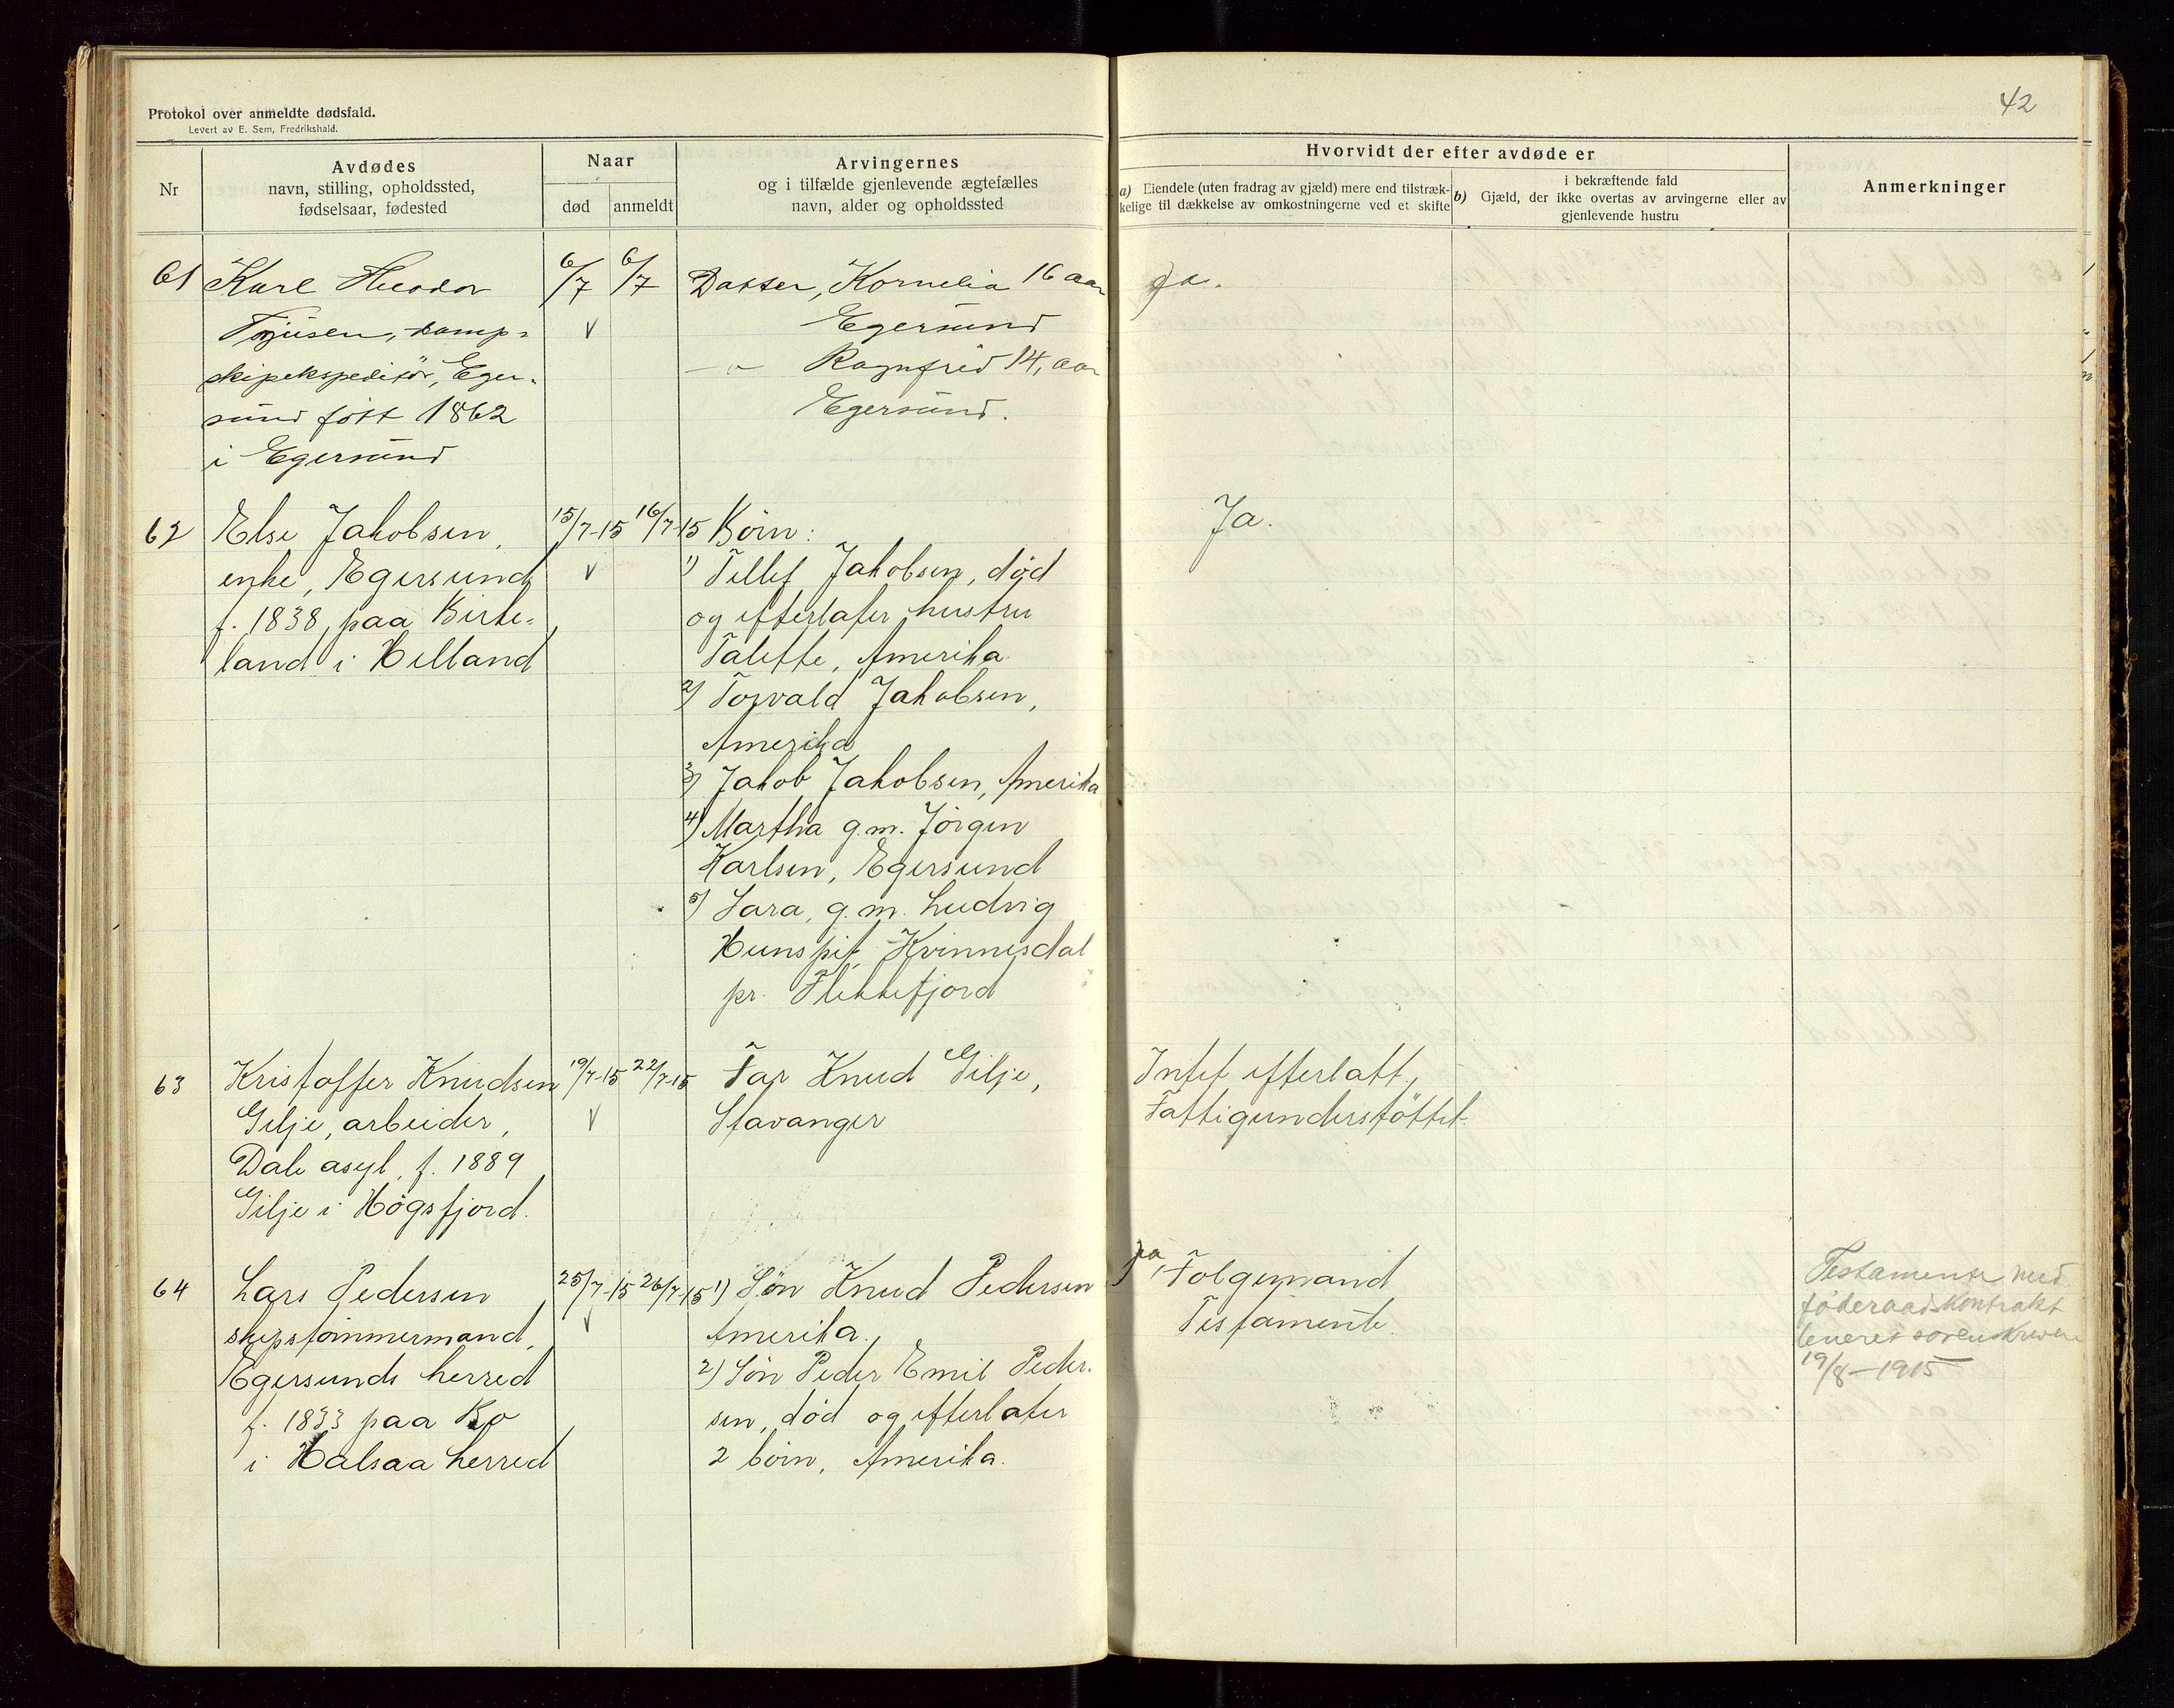 Protokol over anmeldte dødsfald.
Levert av E. Sem, Fredrikshald.
42
Nr
Avdødes
navn, stilling, opholdssted,
fødselsaar, fødested
Naar
død
anmeldt
Arvingernes
og i tilfælde gjenlevende ægtefælles
navn, alder og opholdssted
Hvorvidt der efter avdøde er
a) Eiendele (uten fradrag av gjæld) mere end tilstræk-
kelige til dækkelse av omkostningerne ved et skifte
i bekræftende fald
b) Gjæld, der ikke overtas av arvingerne eller av
gjenlevende hustru
Anmerkninger
61
Karl Theodor
Tojusen, damp-
skipekspeditör, Eger-
sund fött 1862
i Egersund
6/7
6/7
V
Datter, Kornelia 16 aar
Egersund
— " — Ragnfrid 14, aar
Egersund.
Ja.
62
Else Jakobsen,
enke, Egersund,
f. 1838, paa Birke-
land i Helland
15/7-15
16/7-15
V
Börn:
1) Tellef Jakobsen, död
og efterlater hustru
Talette, Amerika
2) Torvald Jakobsen,
Amerika
3) Jakob Jakobsen, Amerika
4) Martha g.m. Jörgen
Karlsen, Egersund
5) Sara, g.m. Ludvig
Hunspit, Kvinnesdal
pr. Flekkefjord
Ja.
63
Kristoffer Knudsen
Gilje, arbeider,
Dale asyl, f. 1889
Gilje i Högsfjord.
19/7-15
22/7-15
V
Far Knud Gilje,
Stavanger
Intet efterlatt,
Fattigunderstöttet.
64
Lars Pedersen
skipstömmermand,
Egersunds herred
f. 1833 paa Bo
i Halsaa herred
25/7-15
26/7-15
V
1) Sön Knud Pedersen
Amerika.
2) Sön Peder Emil Peder-
sen, död og efterlater
2 börn, Amerika.
Ja, Folgemand
Testamente.
Testamente med
föderaadskontrakt
leveret sorenskriveren
19/8-1915